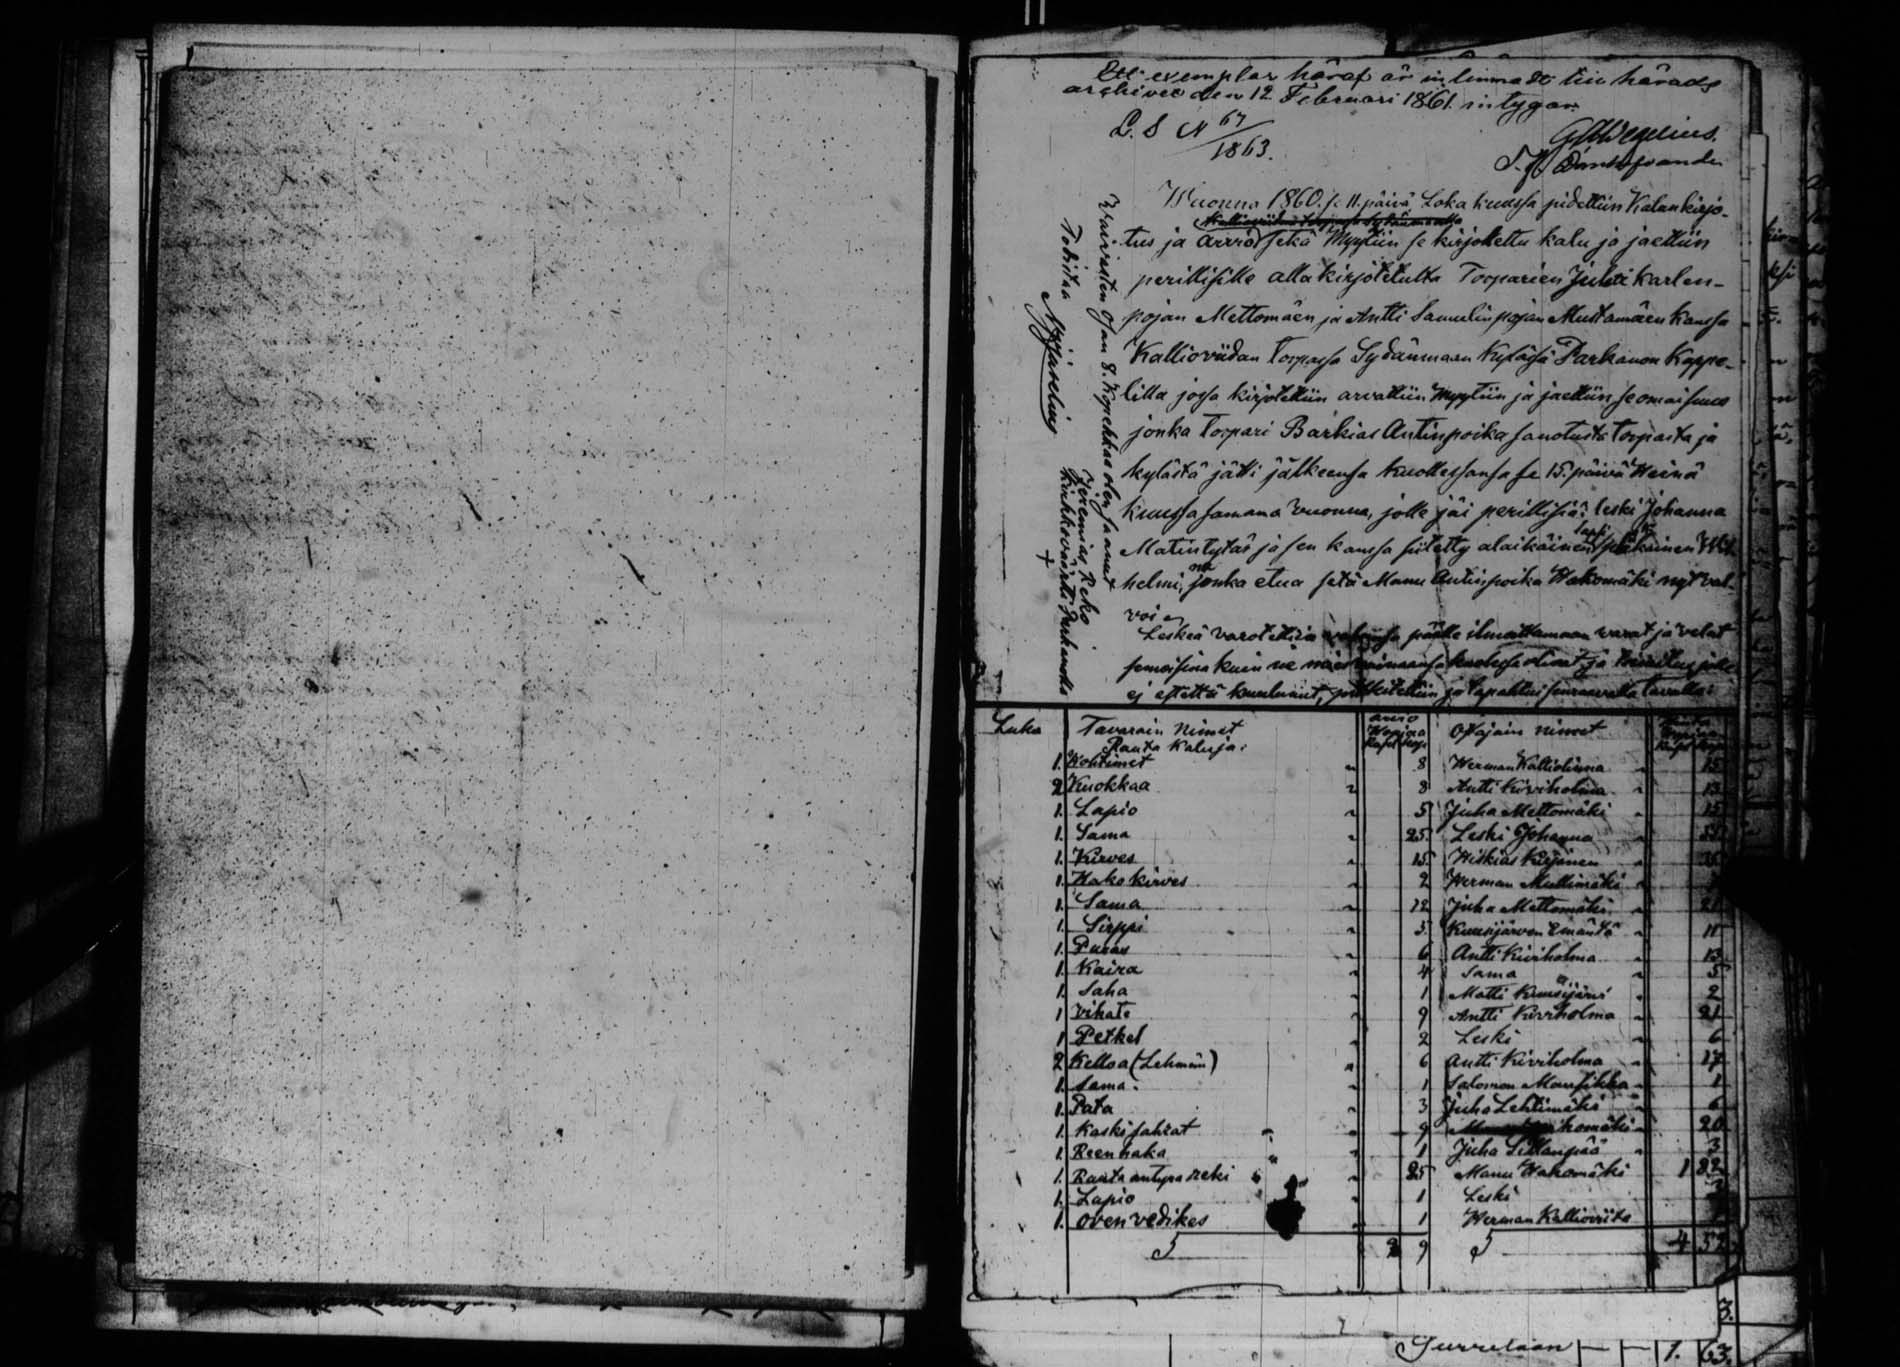 Ett exemplar häraf är inlemnadt till härads
archivet den 12 Februari 1861. intygar
L. S N 67/1863.
Wuonna 1860. se 11. päivä Loka kuussa pidettiin Kalun kirjo-
tus ja arvio sekä Myytiin se kirjotettu kalu ja jaettiin
perillisille alla kirjotetulta Torparien Juha Karlen-
pojan Mettomäen ja Antti Samulinpojan Mustamäen kanssa
Kallioviidan Torpassa Sydänmaan Kylässä Parkanon Kappe-
lilla jossa kirjotettiin arvattiin Myytiin ja jaettiin se omaisuus
jonka Torpari Barkias Antinpoika sanotusta Torpasta ja
kylästä jätti jälkeensä kuollessansa se 15. päivä Heinä
kuussa samana vuonna, jolle jäi perillisiä: leski Johanna
Matintytär ja sen kanssa siitetty alaikäinen lapsi Wil-
helmina, jonka etua setä Manu Antinpoika Hakomäki nyt val-
voi.
Leskeä varotettiin päälle ilmoittamaan varat ja velat
semoisina kuin ne miesvainaansa kuolessa olivat, ja
ej estettä kuulunut, ja tapahtui seuraavalla tavalla:
Waivasten osan 8. Kopekkaa olen saanut
Jeremias Keko
Kirkkoväärti Parkanosta
Todistaa
Luku Tavarain Nimet arvio Hopiaa Rupl. Kop. Ostajain nimet Hopiaa Rupl. Kop.
Rauta Kaluja:
1. Kohtimet " 8 Herman Kalliolinna " 15
2 Kuokkaa " 8 Antti Kiviholma " 13
1. Lapio " 5 Juha Mettomäki " 15
1. Sama " 25 Leski Johanna "
1. Kirves " 15 Hiskias "
1. Hako kirves " 2 Herman Mullimäki "
1. Sama " 12 Juha Mettomäki " 21
1. Sirppi " 3 Kuusijärven Emäntä " 11
1. Puras " 6 Antti Kiviholma " 13
1. Kaira " 4 Sama " 5
1. Saha " 1 Matti Kuusijärvi " 2
1 Vikate " 9 Antti Kiviholma " 21
1 Petkel " 2 Leski " 6
2 Kelloa (Lehmän) " 6 Antti Kiviholma " 17
1. Sama " 1 Salomon Mansikka " 1
1. Pata " 3 Juha Lehtimäki " 6
1. Kaski sahrat " 9 komäki " 20
1. Reenhaka " 1 Juha Sillanpää " 3
1. Rauta antura Reki " 25 Manu Hakomäki 1 82
1. Lapio " 1 Leski 3
1. Oven vedikes " 1 Herman Kallioviita 1
S 9 S 4 52
3.
Siirretään — — 1. 63.